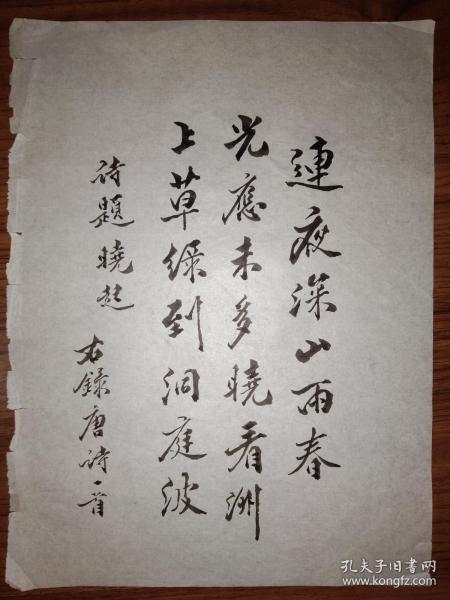 連夜深山雨春
光應未多曉看洲
上草綠到洞庭波
詩題曉起
右錄唐詩一首
孔夫子旧书网
www.kongfz.com